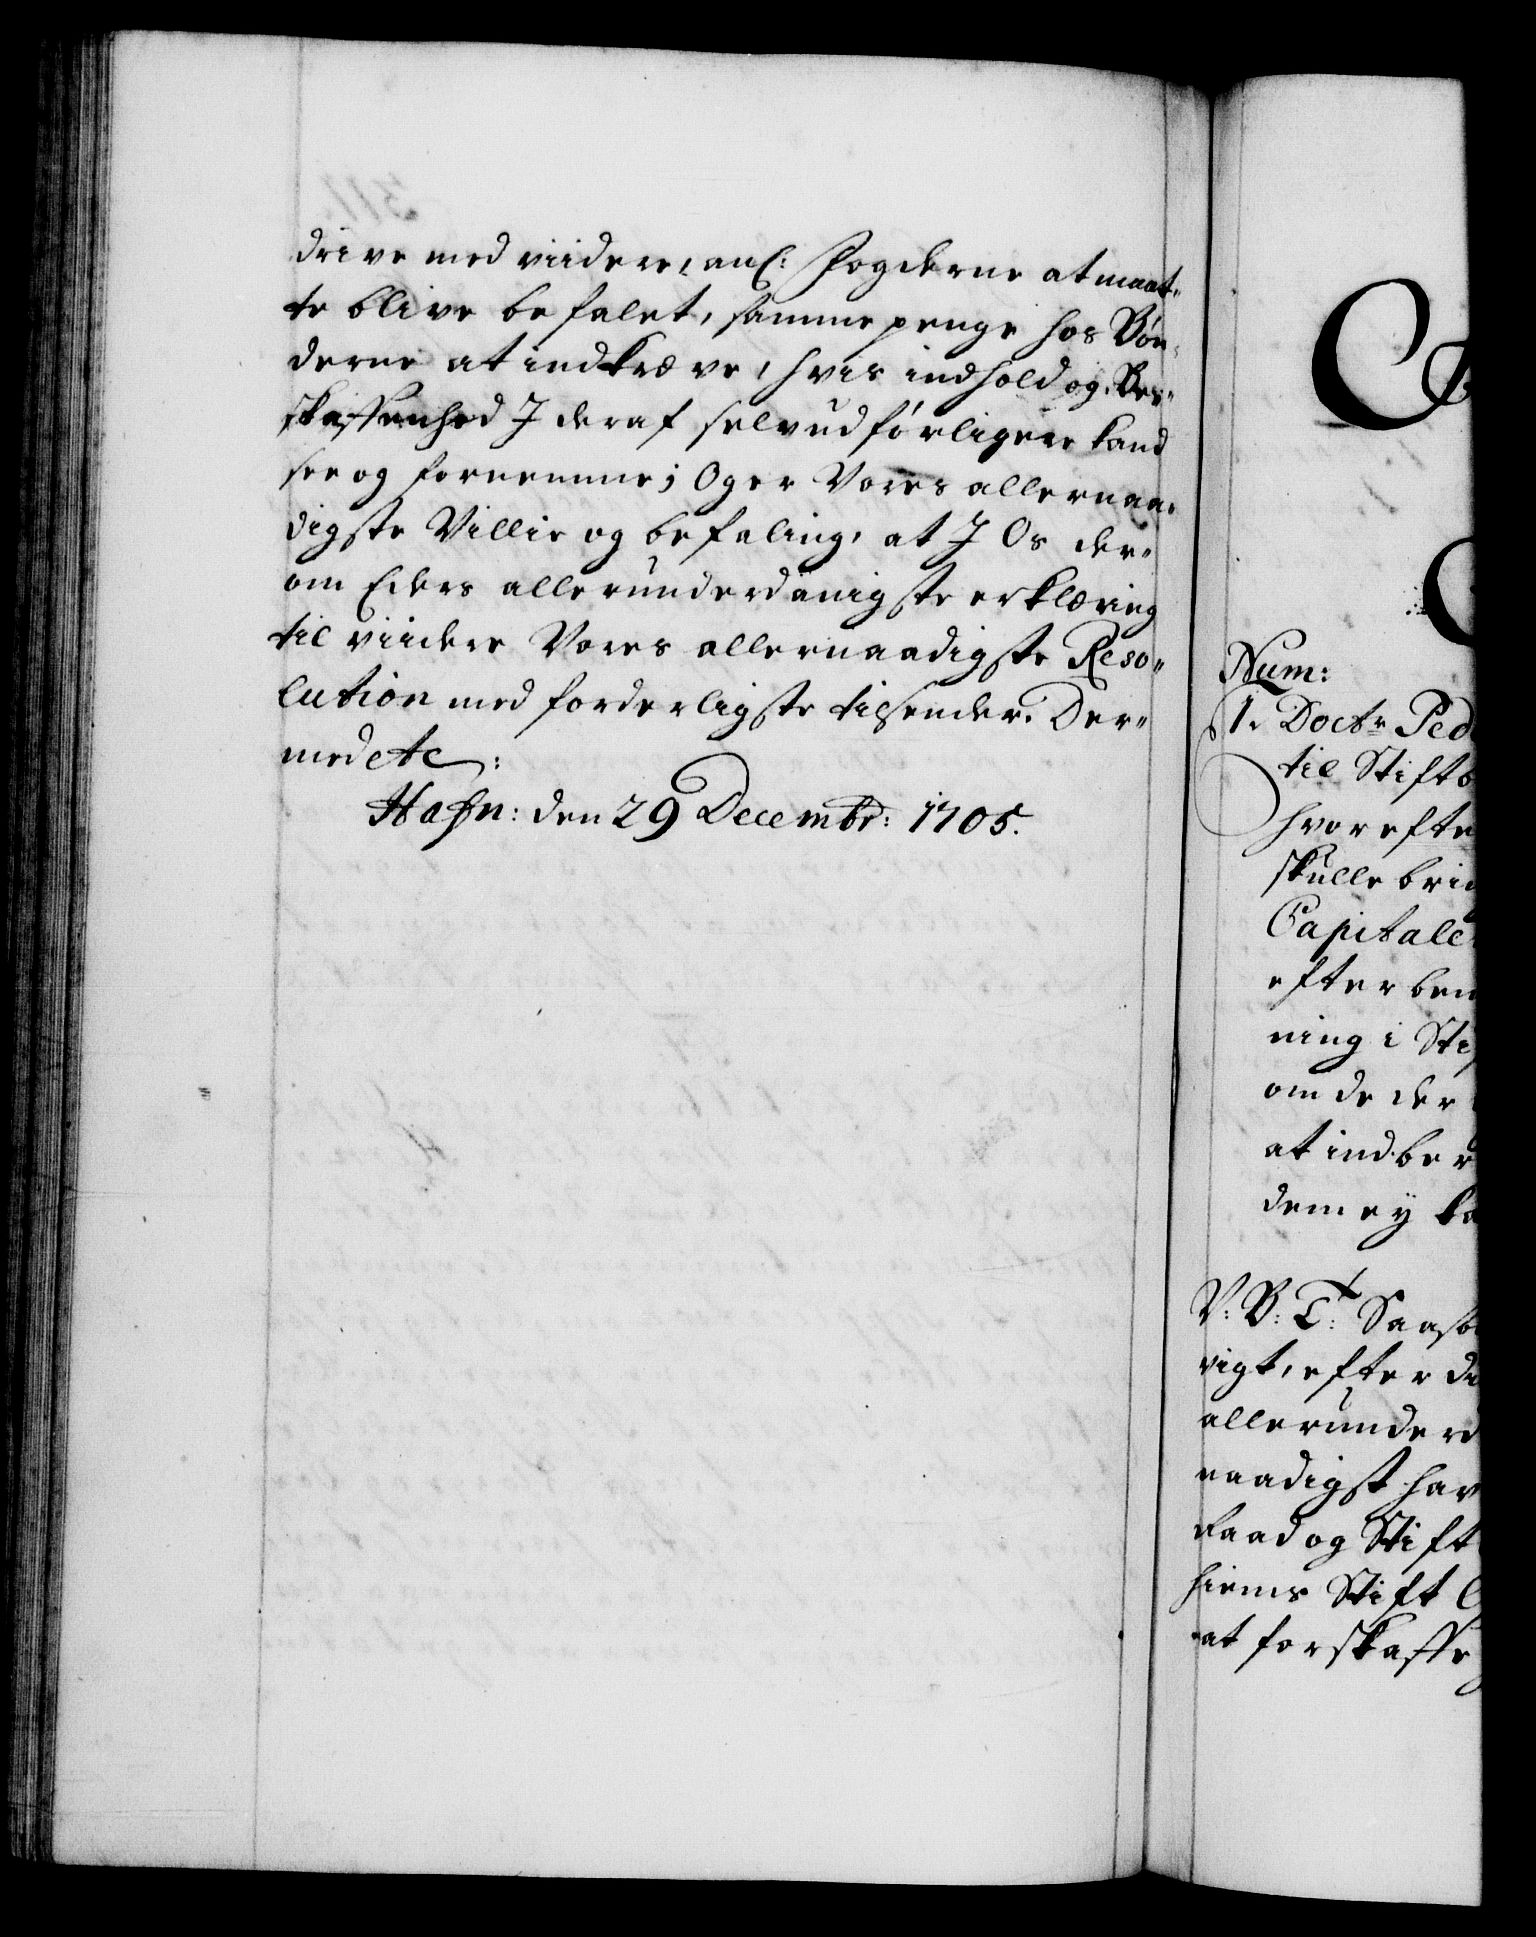 drive med viidere, anl: Fogderne at maat„
te blive befalet, samme penge hos Bøn„
derne at indkræve, hvis indhold og Be„
skaffenhed J deraf selv udførligere kand
see og fornemme; Og er Vores allernaa„
digste Villie og befaling, at J Os der„
om Eders allerunderdanigste erklæring
til viidere Vores allernaadigste Reso„
lution med forderligste tilsender. Der„
med etc:
Hafn: den 29 Decembr: 1705.
Num:
1. Doctr Ped
til Stiftb
hvorefte
skulle brin
Capitale
efter ben
ning i Stif
om de der
at indber
dem ey ka
V: B: T: Saasom
vigt, efter di
allerunderd
naadigst hav
Raad og Stift
hiems Stift
at forskaffe